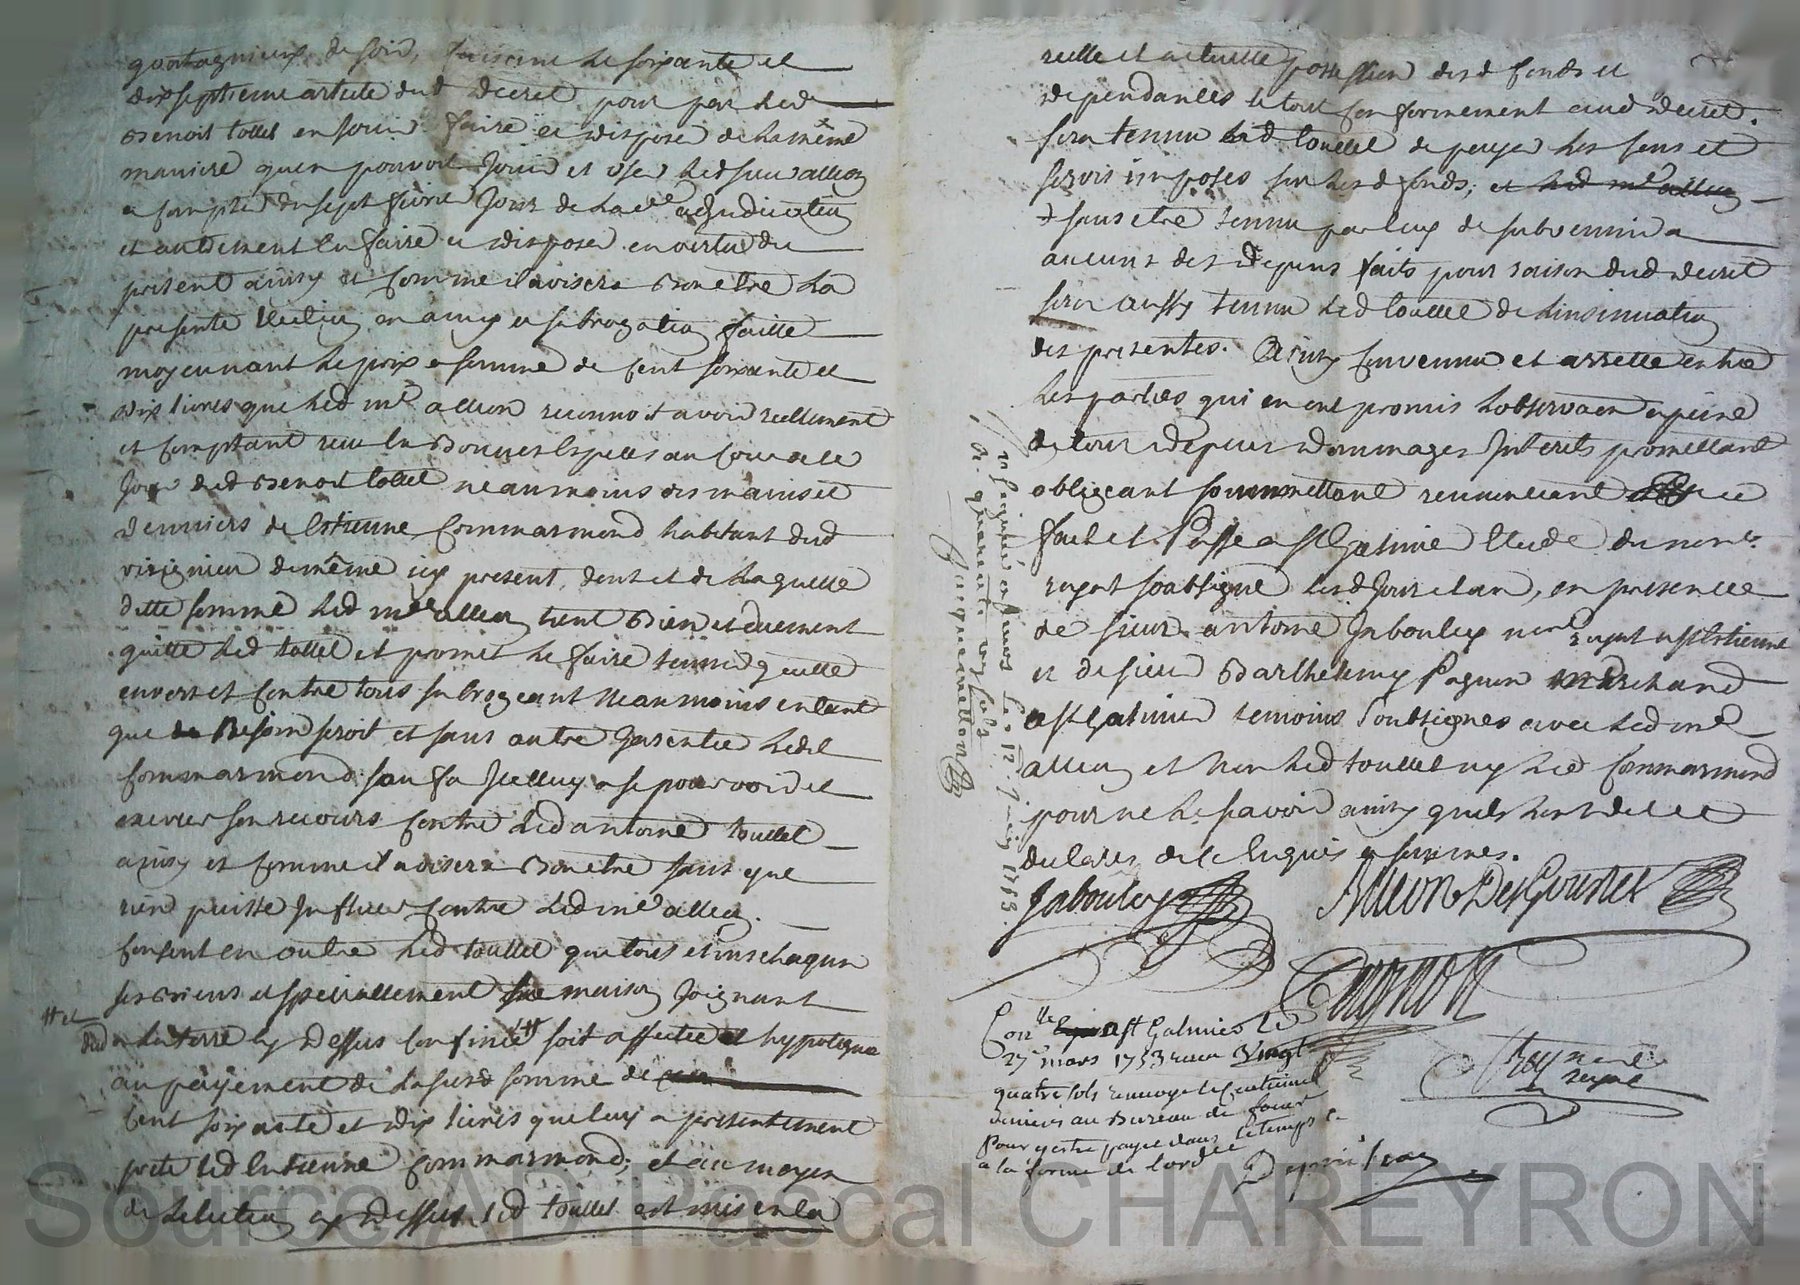 de soir, le soixante et
dixseptieme article dud decret pour par led
Benoit tollet en jouir faire et dispose de la même
maniere quen pouvoit jouir et user led sieur alleon
a compter du sept fevrier jour de lad adjudication
et autrement en faire et disposer en vertu du
present ainsy et comme il avisera bon etre la
presente election en amy et subrogation faitte
moyennant le prix et somme de cent soixante et
dix livres que led me alleon reconnoit avoir reellement
et comptant receu en bonnes especes au cours de ce
jour dud Benoit tollet neanmoins des mains et
deniers de Estienne Commarmond habitant dud
virignieu de même icy present, dont et de laquelle
ditte somme led me alleon tient bien et duement
quitte led tollet et promet le faire tenir quitte
envers et contre tous subrogeant neanmoins en tant
que besoin seroit et sans autre garentie led
Commarmond sauf a icelluy a se pourvoir et
exercer son recours contre led antoine toullet
ainsy et comme il avisera bon etre sans que
rien puisse influer contre led me alleon.
Consent en outre led toullet que tous et uns chaqun
ses biens et specialement maison joignant
a la terre cy dessus confinée soit affectée et hypoteque
au payement de la susd somme de
cent soixante et dix livres que luy a presentement
preté led Estienne Commarmond; et au moyen
de l'election cy dessus led toullet est mis en la
reelle et actuelle possession desd fonds et
dependances le tout conformement aud decret.
sera tenu led toullet de payer les sens et
servis imposés sur lesd fonds; et led me alleon
sans etre tenu par luy de subvenir a
aucuns des depens faits pour raison dud decret
sera aussy tenu led toullet de linsinuation
des presentes. Ainsy convenu et arreté entre
les parties qui en ont promis lobserver a peine
de tous depens dommages interets promettant
obligeant soummettant renonceant
fait et Passé a St Galmier Etude du nore
royal soubsigné lesd jour et an, en presence
de sieur antoine Jabouley nore royal a St Estienne
et de sieur Barthelemy Pagnon marchand
a St Galmier temoins soubsignes avec led me
alleon et non led toullet ny led Commarmond
pour ne le savoir ainsy quils lont declaré
de ce enquis et sommes.
Jabouley Alleon DesGoustes
Pagnon
Conlle a St Galmier le
27 mars 1753 receu vingt
quatre sols renvoyé le centieme
deniers au Bureau de
Pour y estre payé dans le temps et
a la forme de l'ordce
insinué a le 12 juin 1753.
R. quarante sols
Jacquemetton
Source AD Pascal CHAREYRON